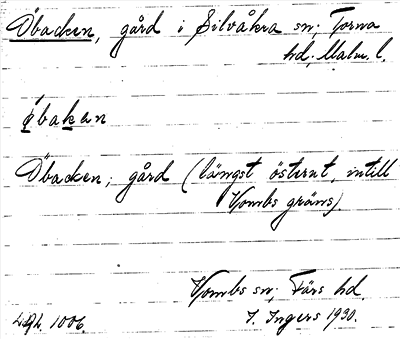 Öbacken, gård i Silvåkra sn; Torna
hd, Malm. l.
øbakan
Öbacken, gård (längst österut, intill
Vombs gräns).
Vombs sn; Färs hd.
1006. I. Ingers 1930.